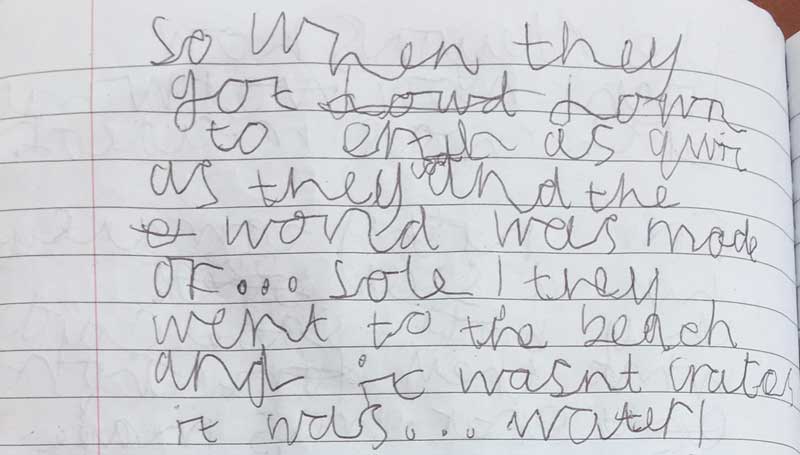 so when they
got down
to erth as quic
as they cud and the
world was made
of... sole! they
went to the beach
and it wasnt crates
it was... water!